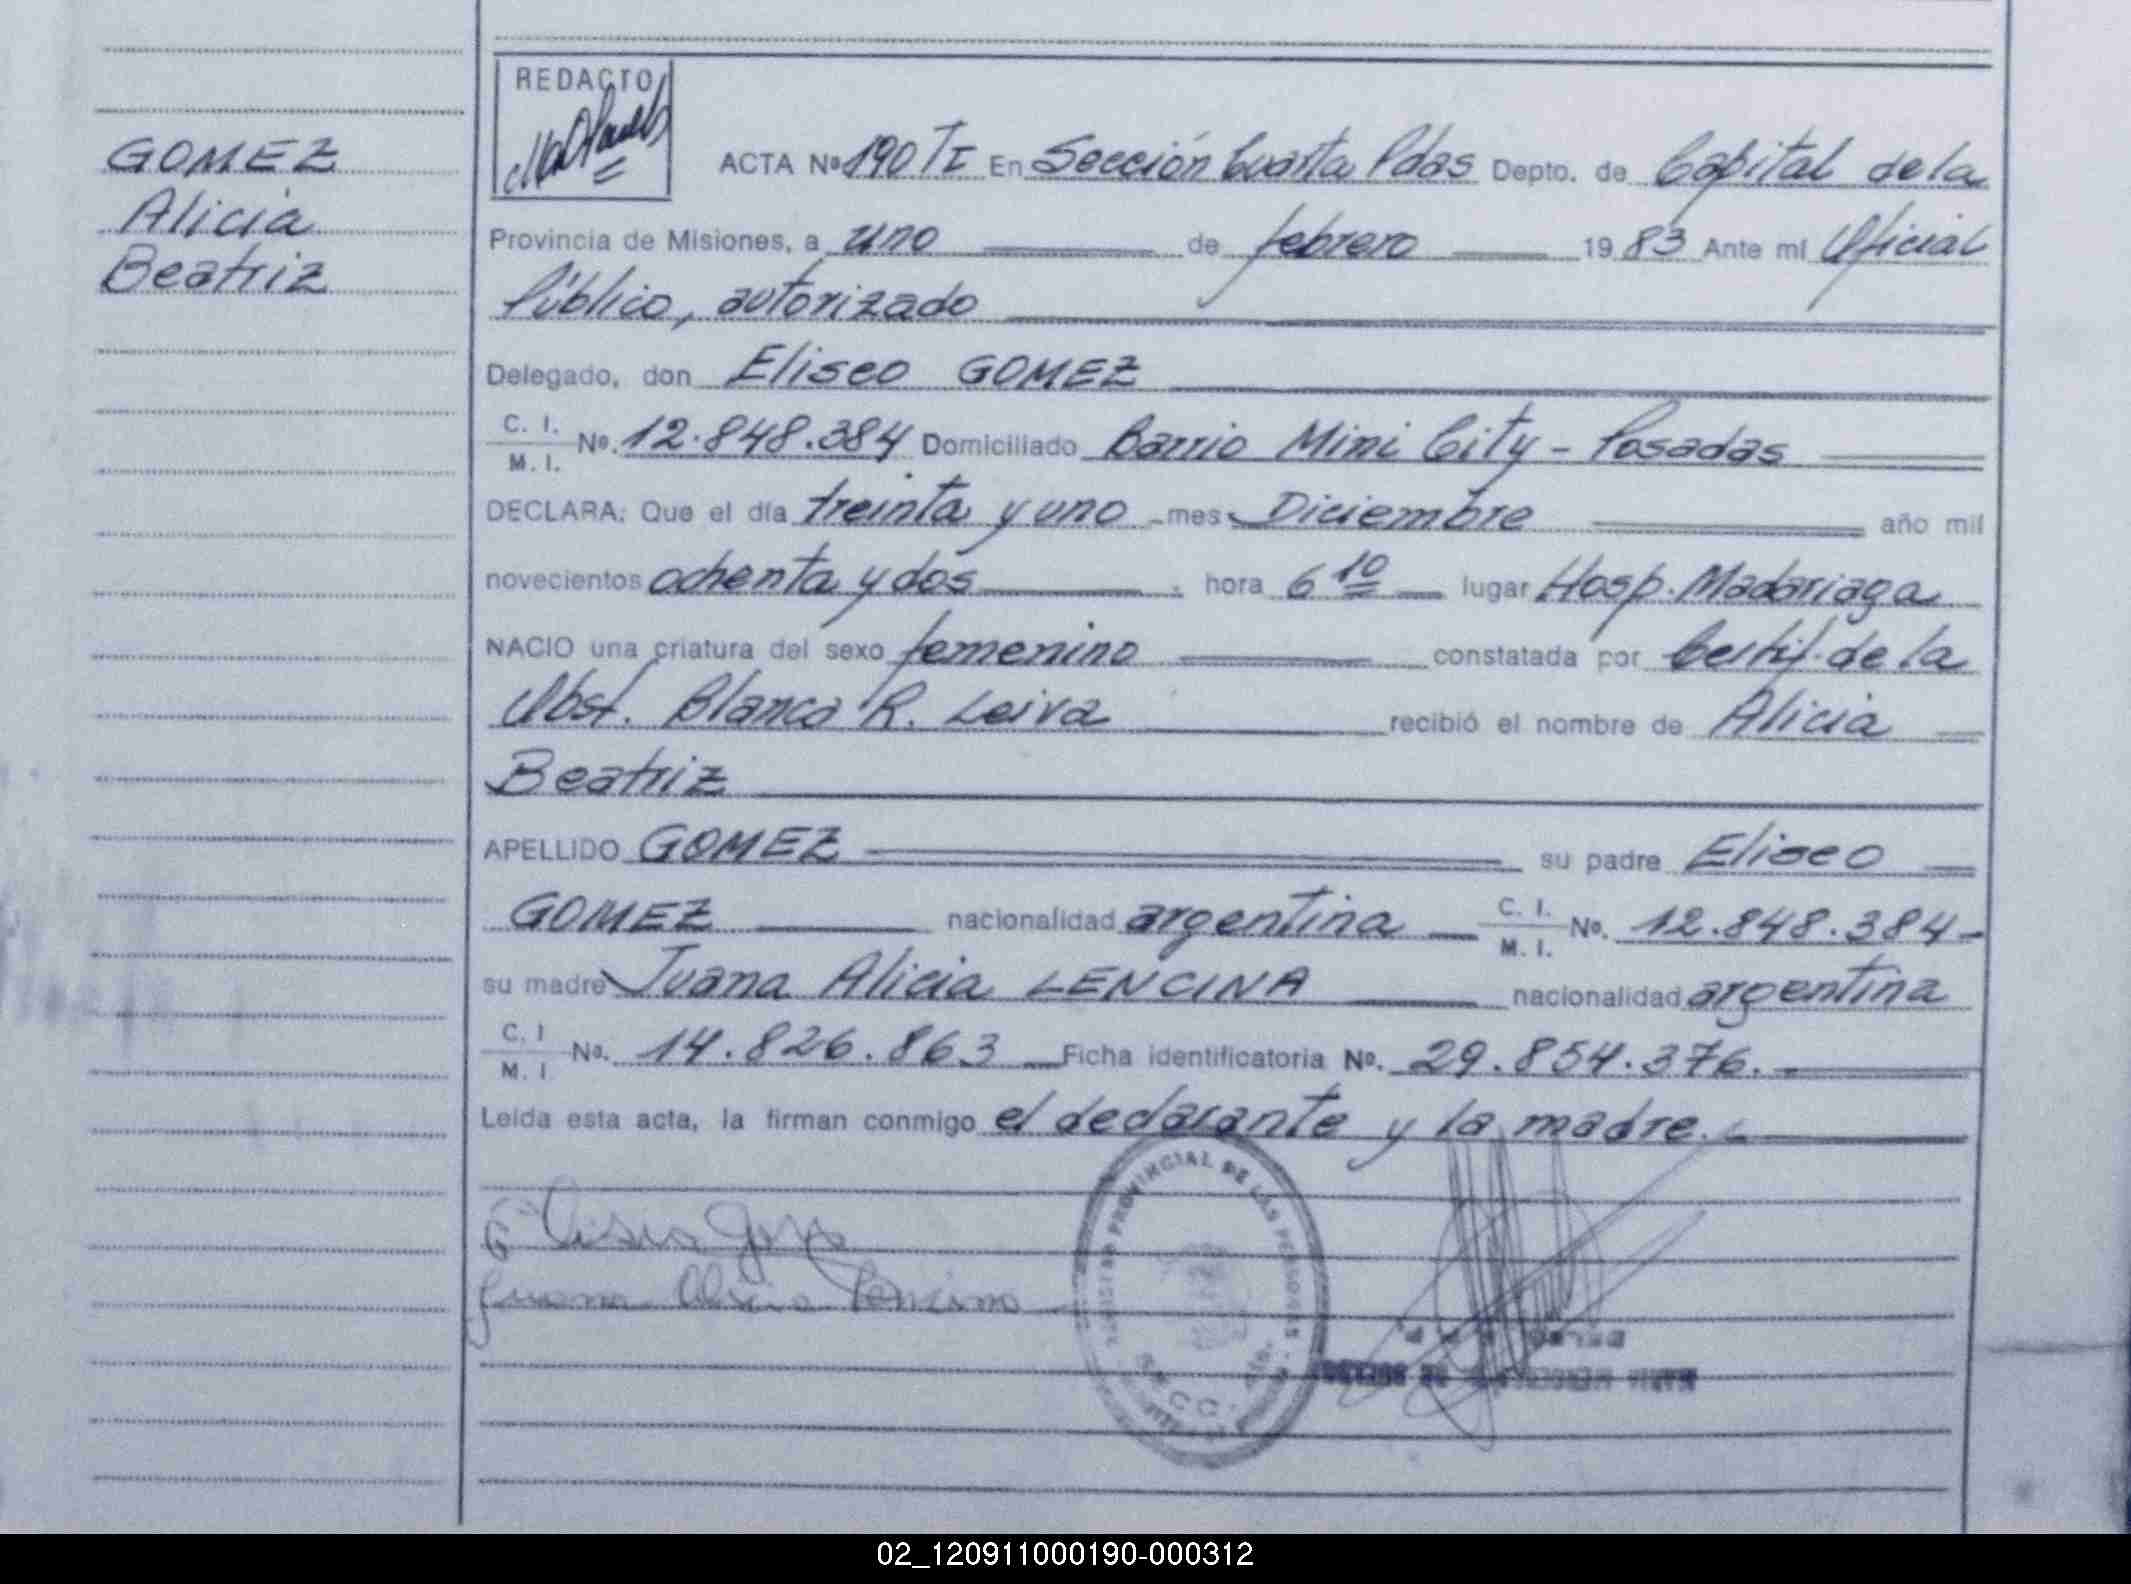 GOMEZ
Alicia
Beatriz
REDACTO
ACTA Nº 190 TI En Sección Cuarta Pdas Depto. de Capital de la
Provincia de Misiones, a uno de febrero 1983 Ante mí Oficial
Público, autorizado
Delegado, don Eliseo GOMEZ
C. I.
M. I. Nº. 12.848.384 Domiciliado Barrio Mini City - Posadas
DECLARA: Que el día treinta y uno mes Diciembre año mil
novecientos ochenta y dos hora 6 10 lugar Hosp. Madariaga
NACIO una criatura del sexo femenino constatada por Certif. de la
Obst. Blanca R. Leiva recibió el nombre de Alicia
Beatriz
APELLIDO GOMEZ su padre Eliseo
GOMEZ nacionalidad argentina C. I. M. I. Nº. 12.848.384-
su madre Juana Alicia LENCINA nacionalidad argentina
C. I
M. I Nº. 14.826.863 Ficha identificatoria Nº. 29.854.376.-
Leída esta acta, la firman conmigo el declarante y la madre.-
Juana Alicia Lencina
PROVINCIAL DE LAS PERSONAS
02_120911000190-000312